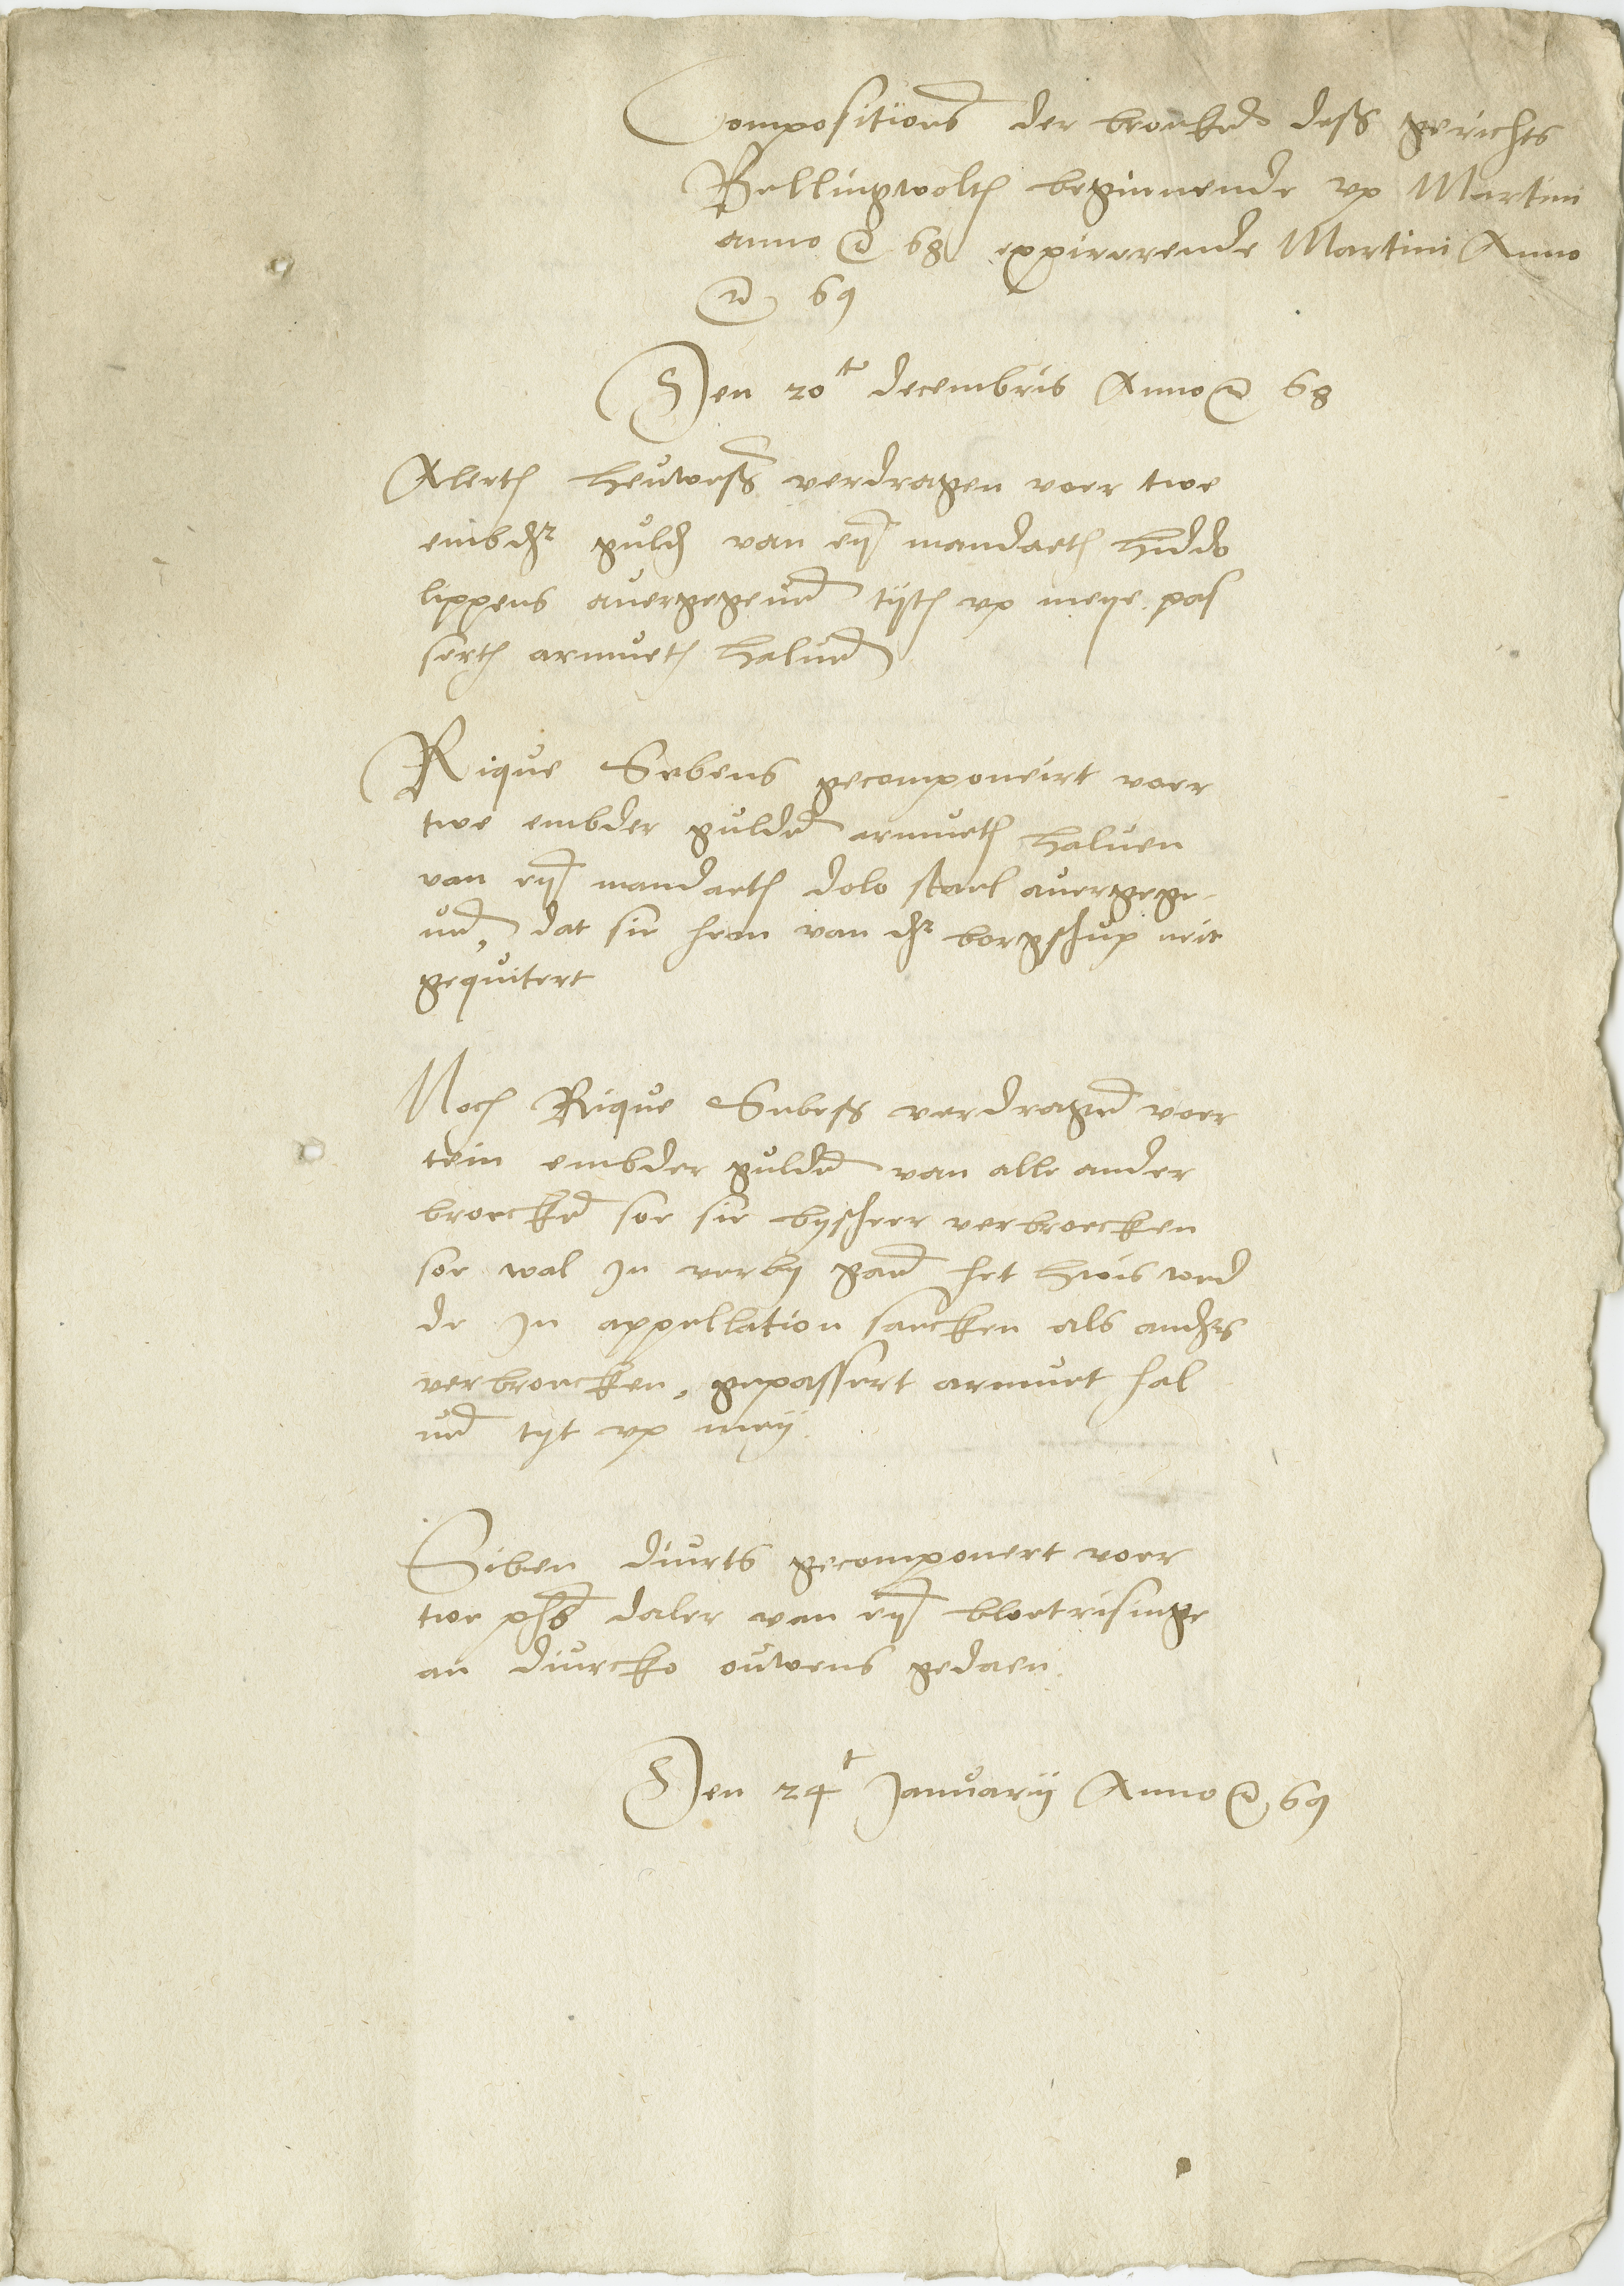 Compositions der broeken dess gerichts
Bellingwolth beginnende vp Martini
anno etc 68 expirerende Martini Anno
etc 69
Den 20te decembris Anno etc 68
Alerth heuwess verdragen voer twe
embder guld van eyn mandaeth hiddo
lippens auergegeuen tyth vp meye pas
serth armueth haluen
Rique Sebens gecomponeirt voer
twe embder gulden armueth haluen
van eyn mandaeth dolo starl auergege-
uen, dat sie hem van der borgschup neit
gequitert
Noch Rique Sebess verdragen voer
tein embder gulden van alle ander
broecken soe sie bysheer verbroecken
soe wal In verby gaen het hwis wed
de In appellation saecken als anders
verbroecken, gepassert armuet hal
uen tyt vp mey
Siben diurts gecomponert voer
twe phs daler van eyn bloetrisinge
an diurcko ouwens gedaen
Den 24t January Anno etc 69